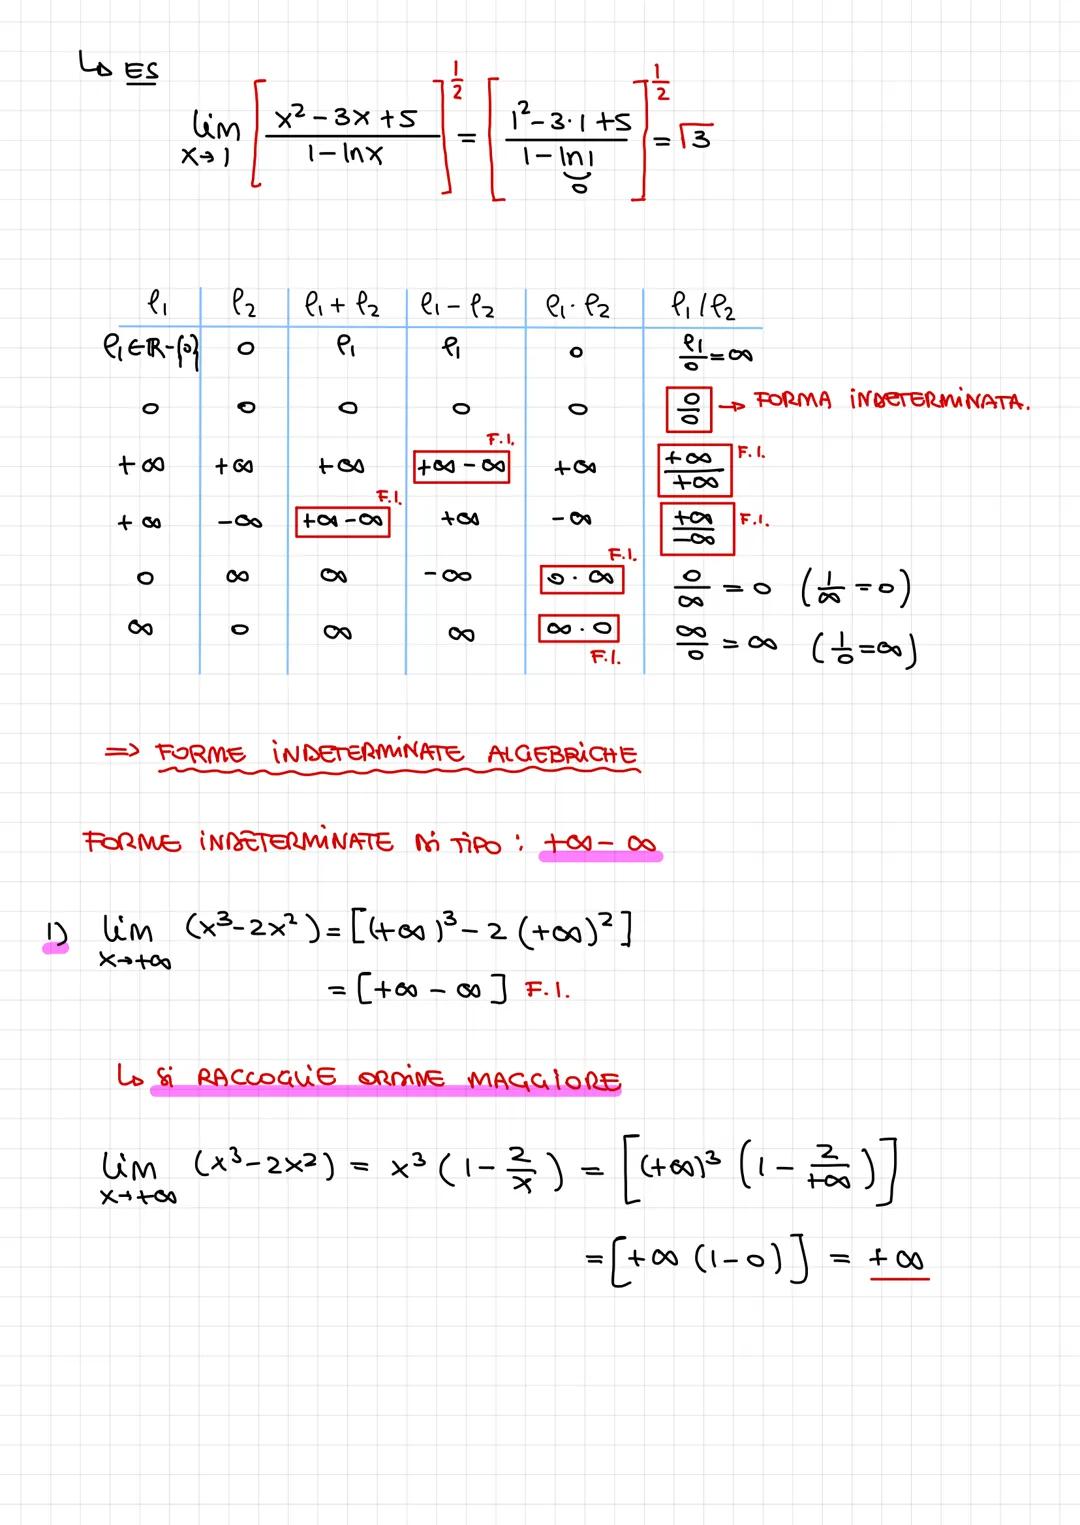 ↳ ES
lim x→1 [ (x² - 3x + 5) / (1 - ln x) ]^(1/2) = [ (1² - 3·1 + 5) / (1 - ln 1) ]^(1/2) = √3
0
ℓ₁ | ℓ₂ | ℓ₁ + ℓ₂ | ℓ₁ - ℓ₂ | ℓ₁ · ℓ₂ | ℓ₁ / ℓ₂
ℓ₁ ∈ ℝ - {0} | 0 | ℓ₁ | ℓ₁ | 0 | ℓ₁/0 = ∞
0 | 0 | 0 | 0 | 0 | 0/0 → FORMA INDETERMINATA.
+∞ | +∞ | +∞ | +∞ - ∞ F.I. | +∞ | +∞/+∞ F.I.
+∞ | -∞ | +∞ - ∞ F.I. | +∞ | -∞ | +∞/-∞ F.I.
0 | ∞ | ∞ | -∞ | 0 · ∞ F.I. | 0/∞ = 0 (1/∞ = 0)
∞ | 0 | ∞ | ∞ | ∞ · 0 F.I. | ∞/0 = ∞ (1/0 = ∞)
=> FORME INDETERMINATE ALGEBRICHE
FORME INDETERMINATE DI TIPO : +∞ - ∞
1) lim x→+∞ (x³ - 2x²) = [(+∞)³ - 2 (+∞)²]
= [+∞ - ∞] F.I.
↳ SI RACCOGLIE ORDINE MAGGIORE
lim x→+∞ (x³ - 2x²) = x³ (1 - 2/x) = [(+∞)³ (1 - 2/+∞)]
= [+∞ (1 - 0)] = +∞